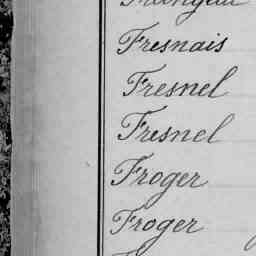 Fresnais
Fresnel
Fresnel
Froger
Froger